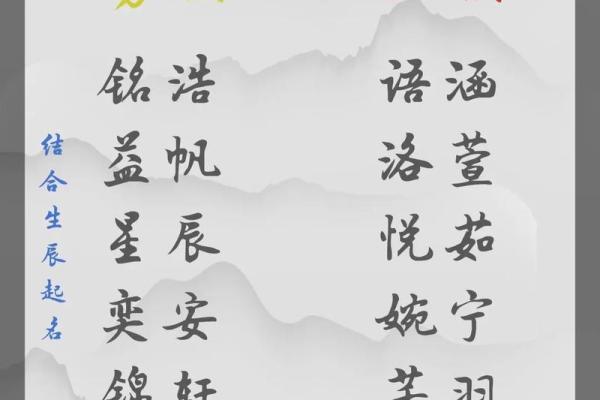 铭浩 语涵
益帆 洛萱
星辰 悦茹
奕安 婉宁
锦轩
羽
结合生辰起名